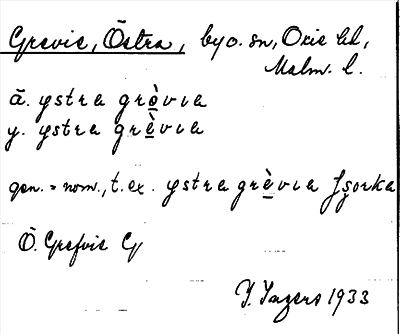 Grevie, Östra, by o. sn, Oxie hd,
Malm. l.
ä. ystra grè̱vıa
y. ystra grè̱vıa
gen. = nom., t. ex. ystra grè̱vıa
Ö. Grefvie
Ingers 1933